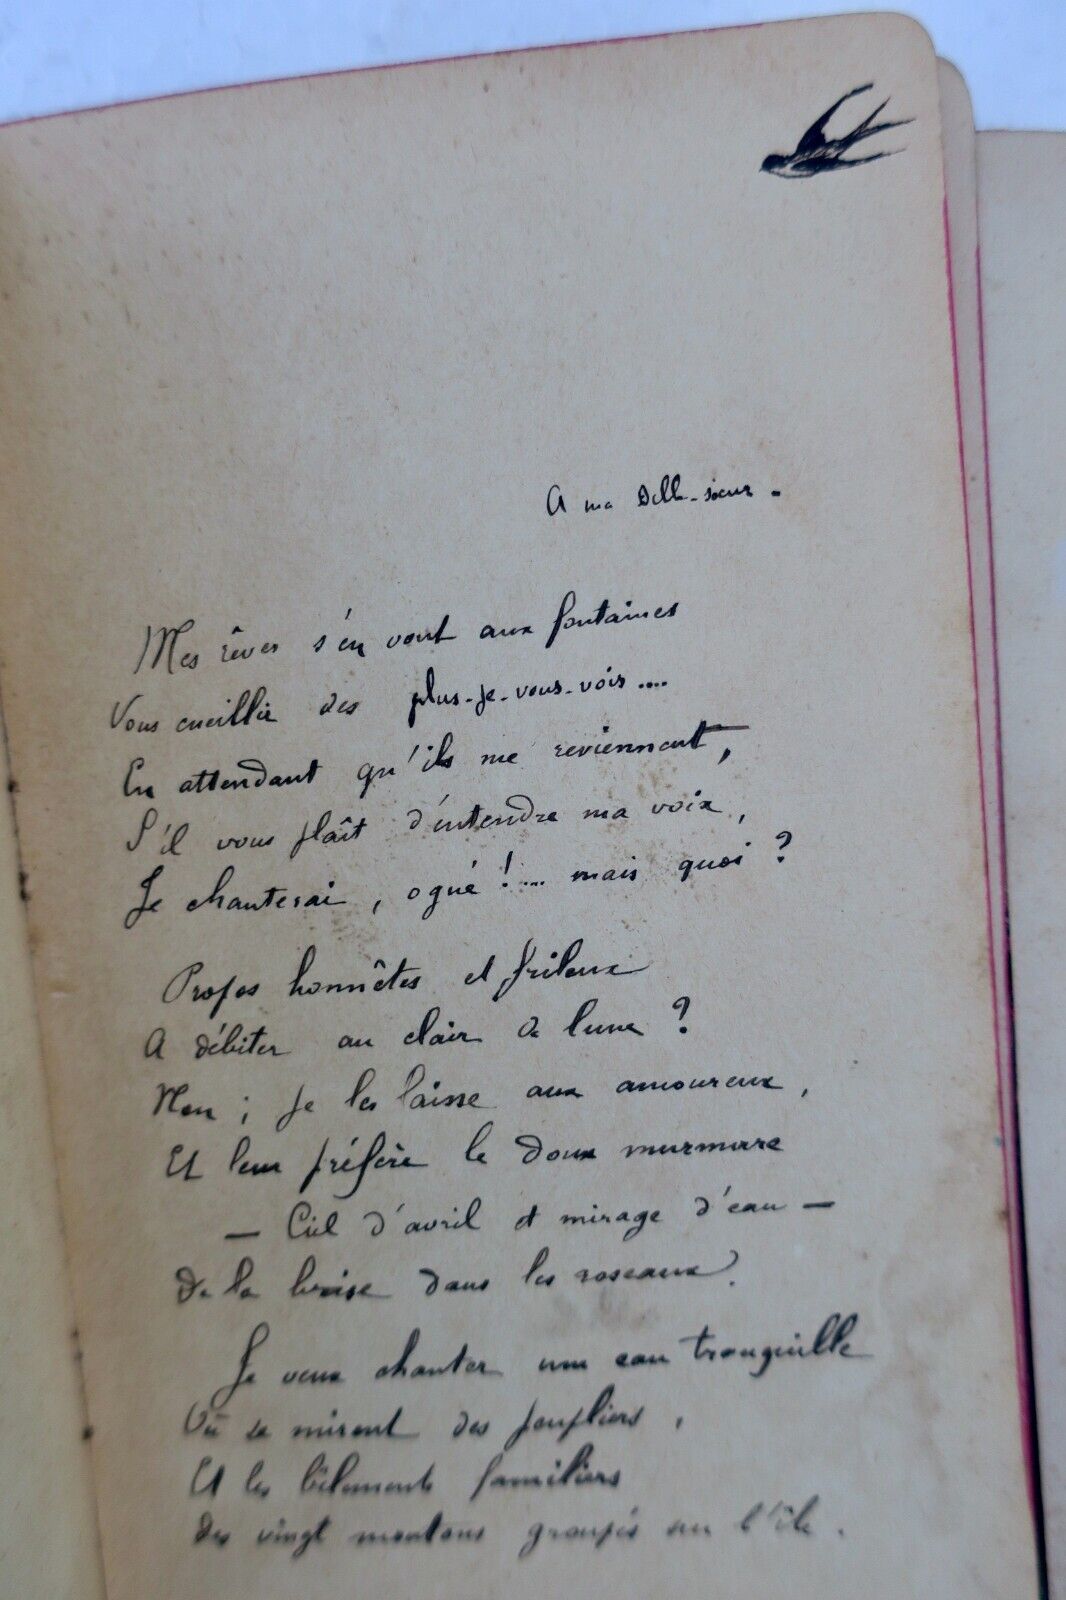 A ma Belle-sœur.
Mes rêves s'en vont aux fontaines
Vous cueillir des plus-je-vous-vois....
En attendant qu'ils me reviennent,
S'il vous plaît d'entendre ma voix,
Je chanterai, ogué !... mais quoi ?
Propos honnêtes et frileux
A débiter au clair de lune ?
Non ; je les laisse aux amoureux,
Et leur préfère le doux murmure
— Ciel d'avril et mirage d'eau —
De la brise dans les roseaux.
Je veux chanter une eau tranquille
Où se mirent des peupliers,
Et les bêlements familiers
Des vingt moutons groupés sur l'île.